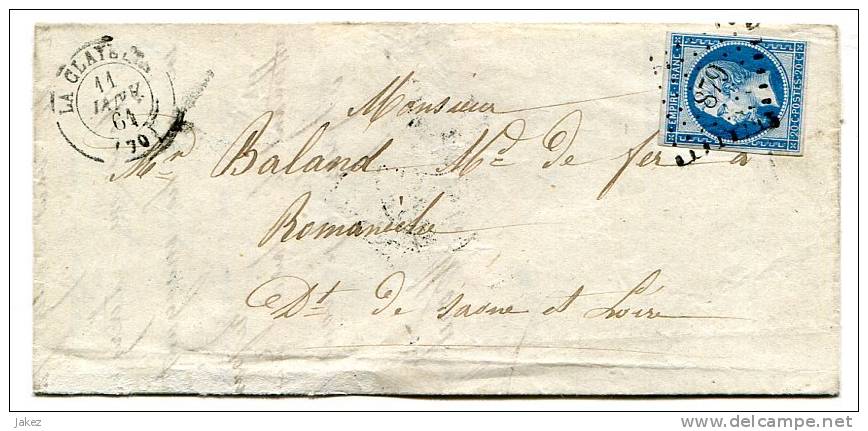 LA CLAYETTE
11
JANV.
61
(70)
EMPIRE FRANC
20 C POSTES 20 C
879
Monsieur
Mr Baland Md de fer a
Romanèche
Dt de Saone et Loire
jakez
delcampe.net